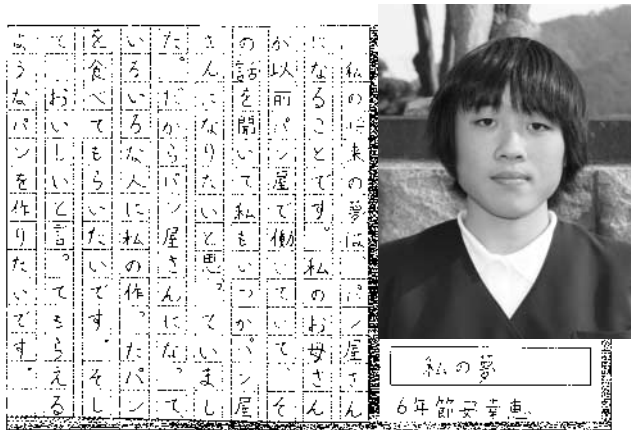 私の将来の夢は、パン屋さん
になることです。私のお母さん
が以前パン屋で働いていて、そ
の話を聞いて私もいつかパン屋
さんになりたいと思っていまし
た。だからパン屋さんになって
いろいろな人に私の作ったパン
を食べてもらいたいです。そし
て、おいしいと言ってもらえる
ようなパンを作りたいです。
私の夢
6年節安幸恵